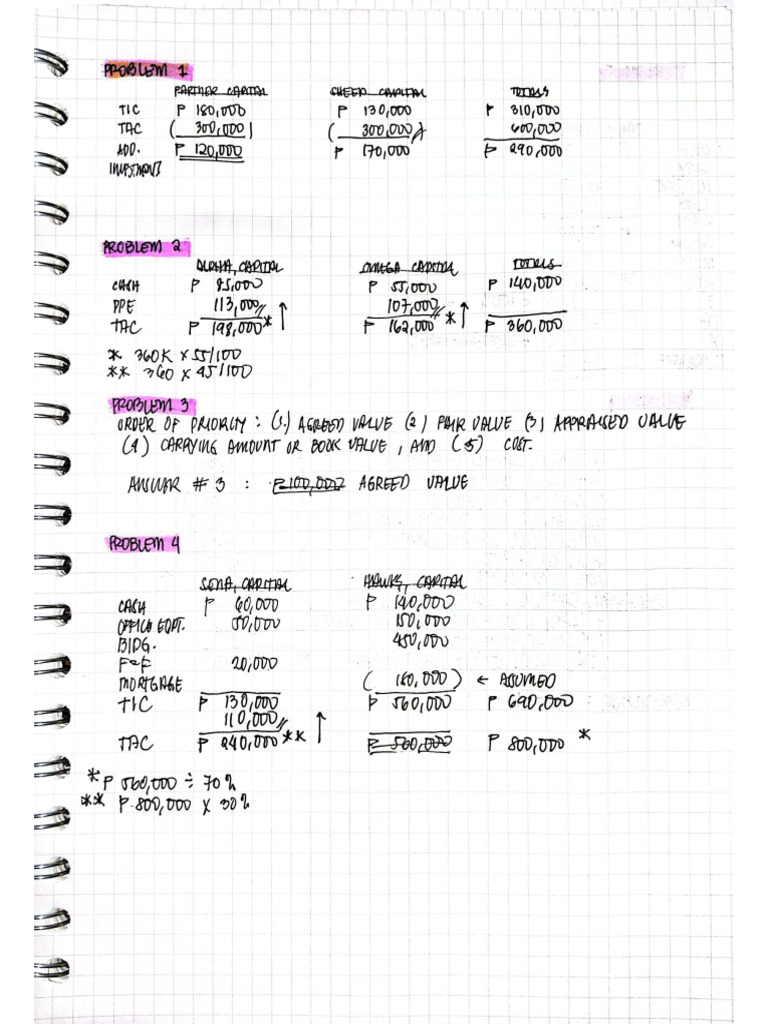 PROBLEM 1
PARTNER CAPITAL SHEED CAPITAL TOTALS
TIC ₱ 180,000 ₱ 130,000 ₱ 310,000
TAC ( 300,000 ) ( 300,000 ) 600,000
ADD. ₱ 120,000 ₱ 170,000 ₱ 290,000
INVESTMENT
PROBLEM 2
ALPHA, CAPITAL OMEGA CAPITAL TOTALS
CASH ₱ 85,000 ₱ 55,000 ₱ 140,000
PPE 113,000 ↑ 107,000 ↑
TAC ₱ 198,000 * ₱ 162,000 * ₱ 360,000
* 360K x 55/100
** 360 x 45/100
PROBLEM 3
ORDER OF PRIORITY : (1.) AGREED VALUE (2) FAIR VALUE (3) APPRAISED VALUE
(4) CARRYING AMOUNT OR BOOK VALUE, AND (5) COST.
ANSWER # 3 : ₱100,000 AGREED VALUE
PROBLEM 4
SONA, CAPITAL HAWKS, CAPITAL
CASH ₱ 60,000 ₱ 140,000
OFFICE EQPT. 50,000 150,000
BLDG. 450,000
F&F 20,000
MORTGAGE ( 180,000 ) ← ASSUMED
TIC ₱ 130,000 ₱ 560,000 ₱ 690,000
110,000 ↑
TAC ₱ 240,000 ** ₱ 560,000 ₱ 800,000 *
* ₱ 560,000 ÷ 70%
** ₱ 800,000 x 30%